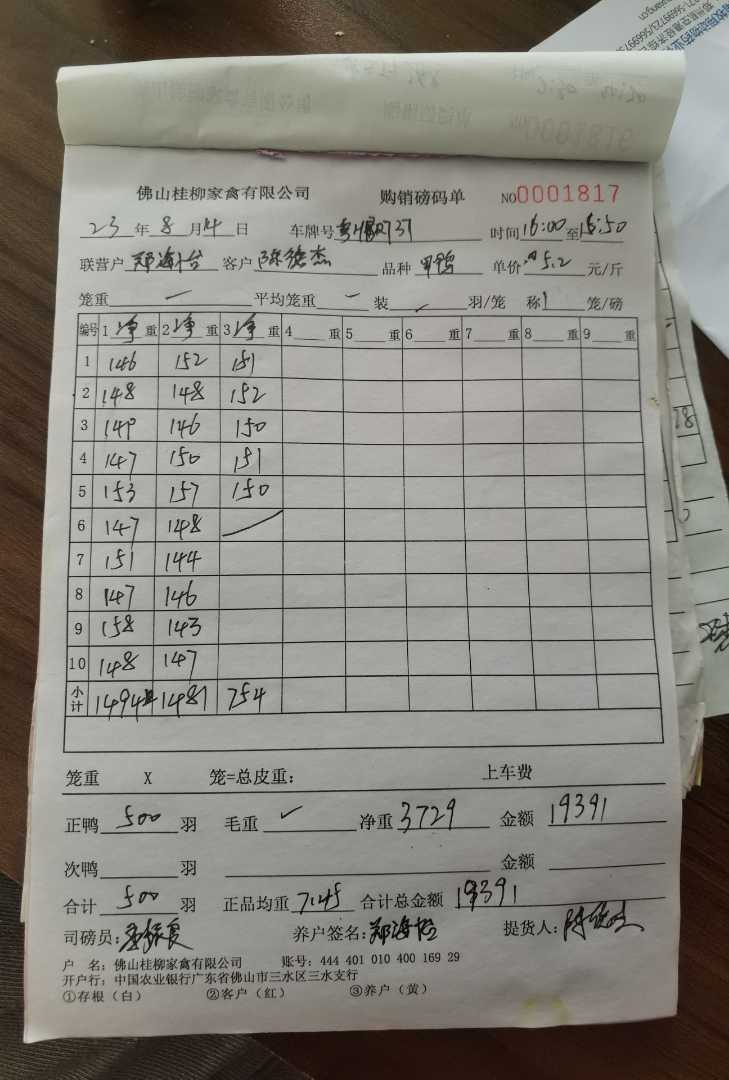 佛山桂柳家禽有限公司 购销磅码单 NO0001817
23 年 8 月 14 日 车牌号 时间 16:00 至 16:50
联营户 客户 陈德杰 品种 单价 5.2 元/斤
笼重 — 平均笼重 — 装 羽/笼 称 1 笼/磅
编号 1 净 重 2 净 重 3 净 重 4 重 5 重 6 重 7 重 8 重 9 重
1 146 152 151
2 148 148 152
3 149 146 150
4 147 150 151
5 153 157 150
6 147 148
7 151 144
8 147 146
9 158 143
10 148 147
小计 1494 1481 754
笼重 X 笼=总皮重: 上车费
正鸭 500 羽 毛重 ✓ 净重 3729 金额 19391
次鸭 羽 金额
合计 500 羽 正品均重 7.45 合计总金额 19391
司磅员: 养户签名: 提货人:
户 名: 佛山桂柳家禽有限公司 账号: 444 401 010 400 169 29
开户行: 中国农业银行广东省佛山市三水区三水支行
①存根（白） ②客户（红） ③养户（黄）